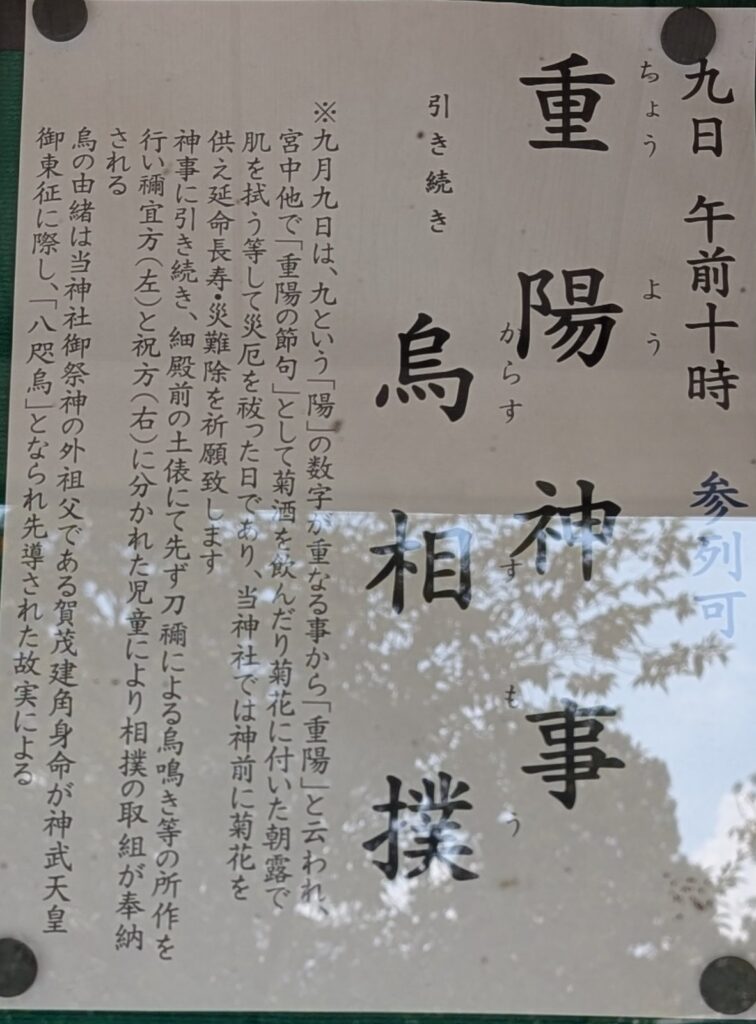 九日 午前十時 参列可
ちょうよう
重陽神事
からすすもう
引き続き 烏相撲
※九月九日は、九という「陽」の数字が重なる事から「重陽」と云われ、
宮中他で「重陽の節句」として菊酒を飲んだり菊花に付いた朝露で
肌を拭う等して災厄を祓った日であり、当神社では神前に菊花を
供え延命長寿・災難除を祈願致します
神事に引き続き、細殿前の土俵にて先ず刀禰による烏鳴き等の所作を
行い禰宜方(左)と祝方(右)に分かれた児童により相撲の取組が奉納
される
烏の由緒は当神社御祭神の外祖父である賀茂建角身命が神武天皇
御東征に際し、「八咫烏」となられ先導された故実による